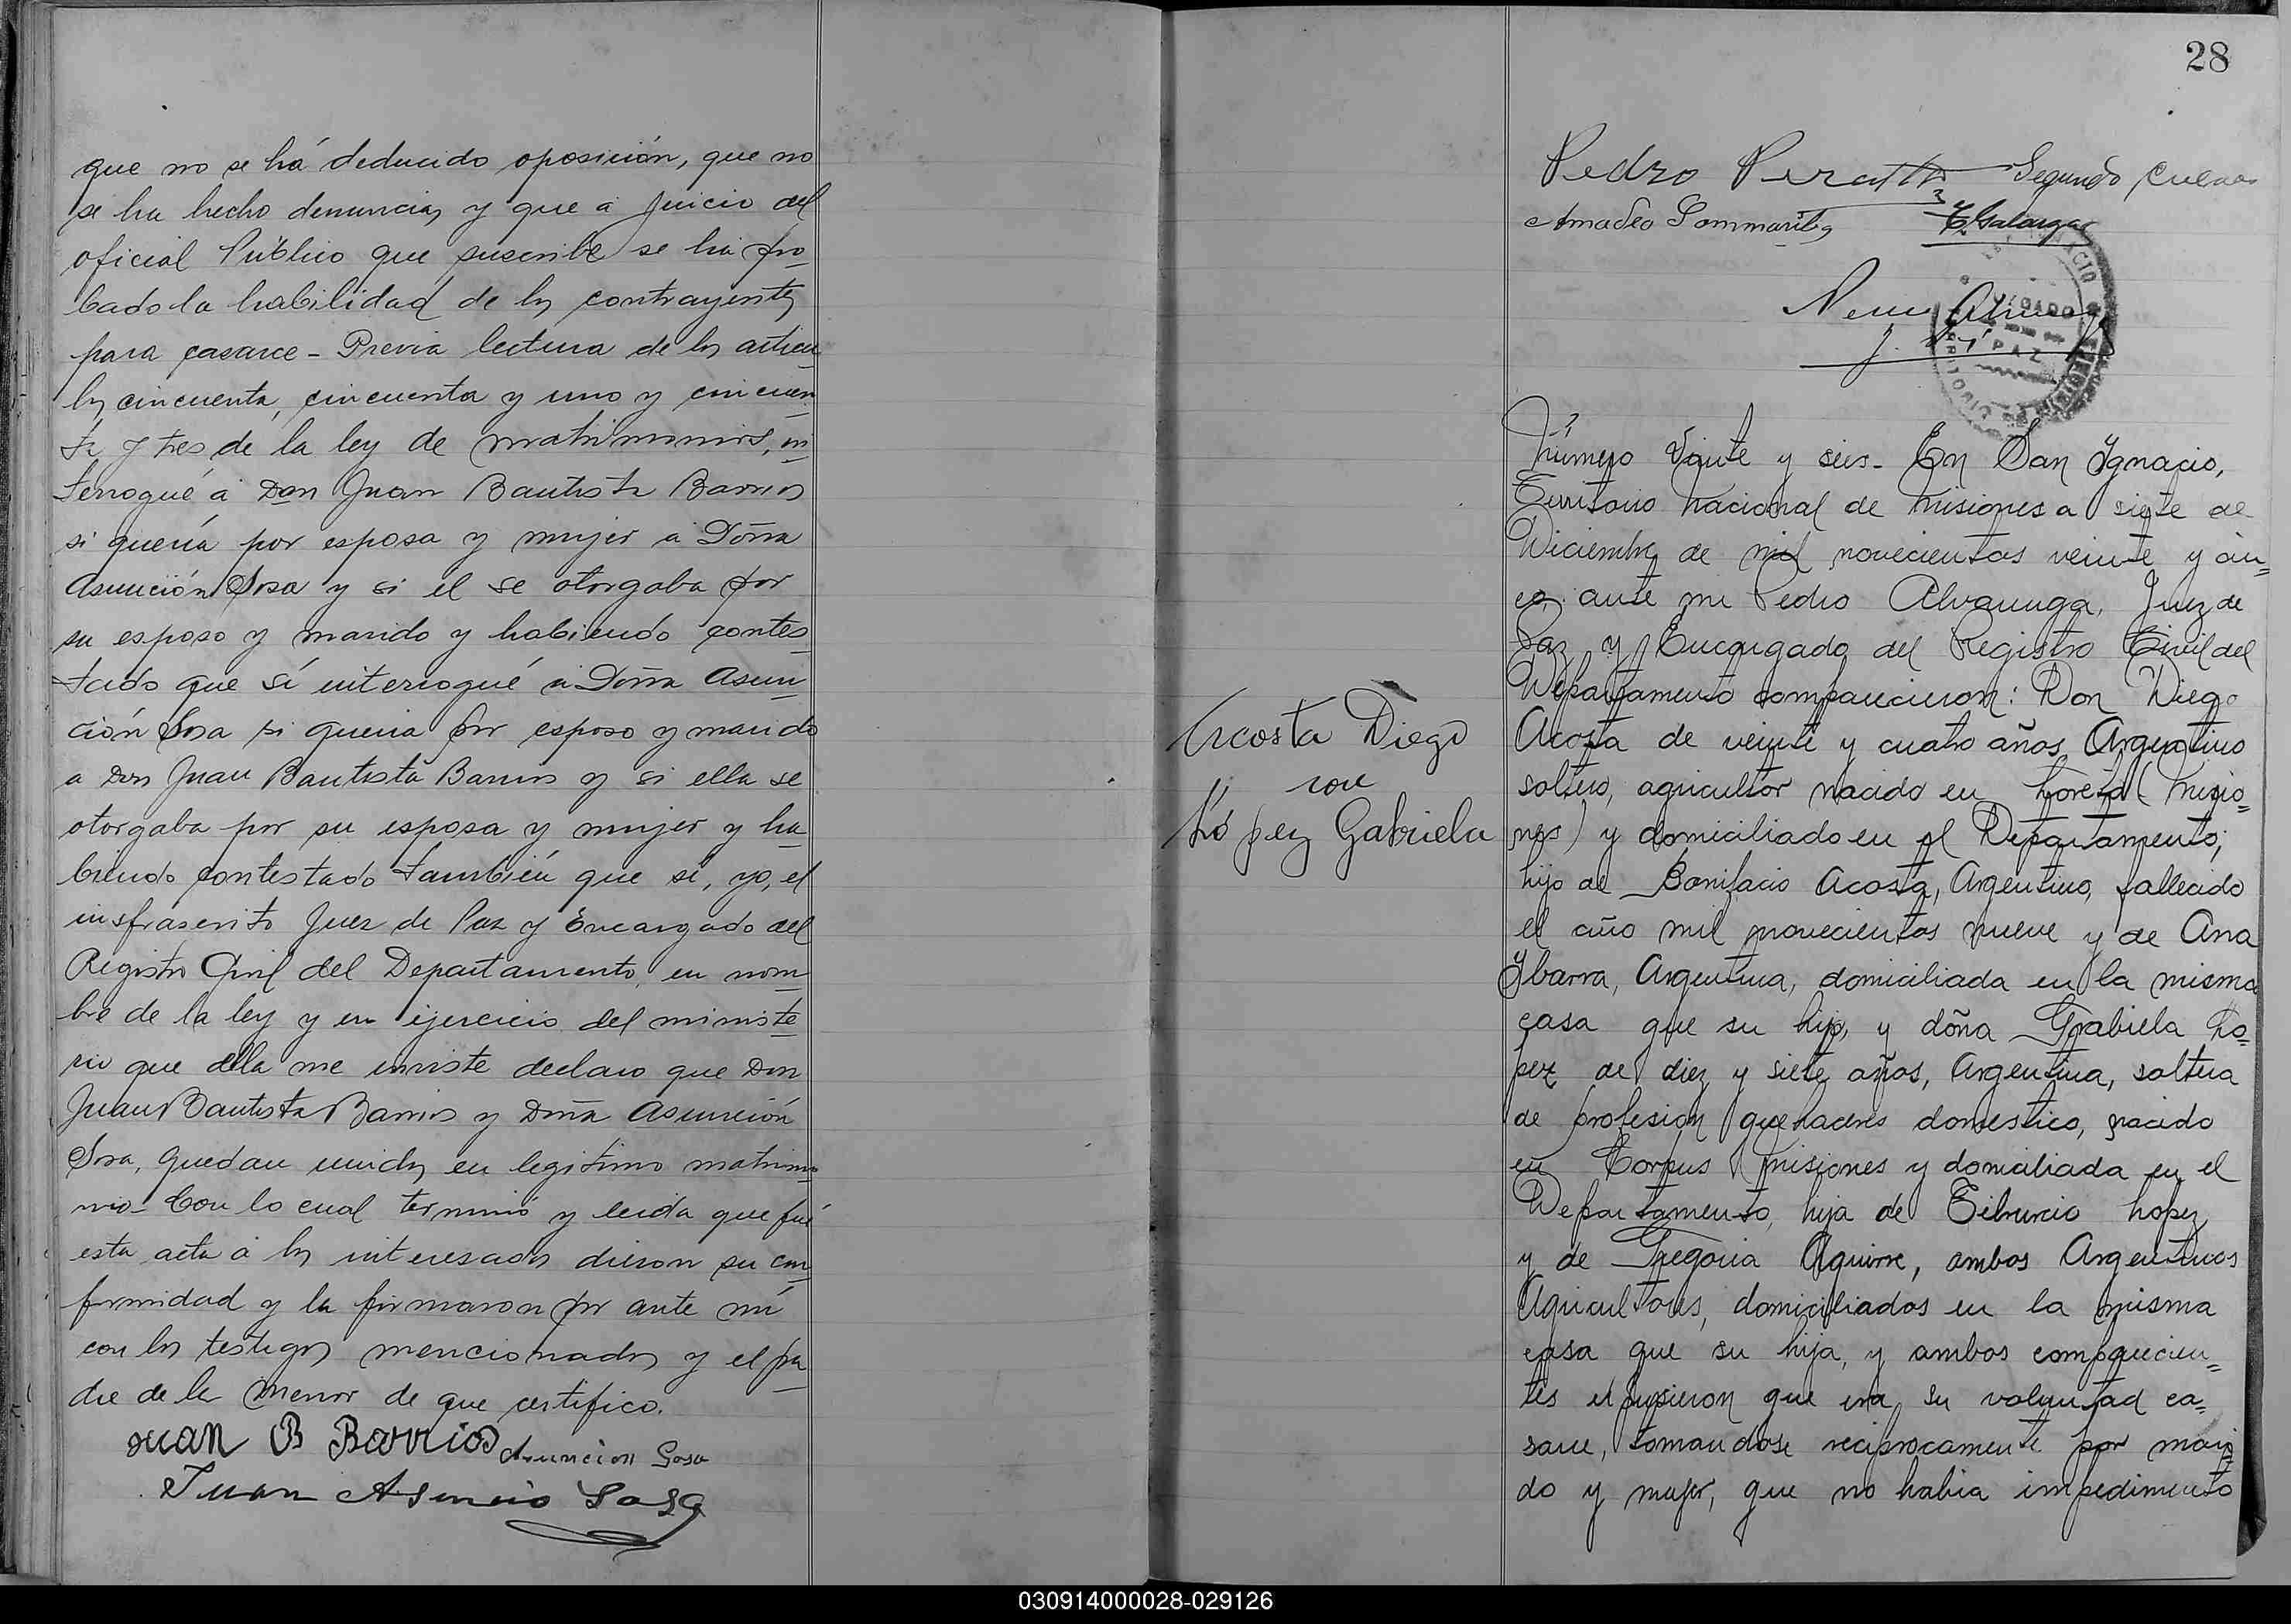 que no se há deducido oposición, que no
se ha hecho denuncia, y que á juicio del
oficial Público que suscribe se ha pro_
bado la habilidad de los contrayentes
para casarce - Previa lectura de los articu_
los cincuenta, cincuenta y uno y cincuen_
ta y tres de la ley de matrimonios, in_
terrogué á Don Juan Bautista Barrios
si quería por esposa y mujer a Doña
Asunción Sosa y si el se otorgaba por
su esposo y marido y habiendo contes_
tado que sí interrogué a Doña Asun_
ción Sosa si queria por esposo y marido
a Don Juan Bautista Barrios y si ella se
otorgaba por su esposa y mujer y ha_
biendo contestado también que sí, yo, el
insfrascrito Juez de Paz y Encargado del
Registro Civil del Departamento, en nom_
bre de la ley y en ejercicio del ministe_
rio que ella me inviste declaro que Don
Juan Bautista Barrios y Doña Asunción
Sosa, quedan unidos en legitimo matrimo_
nio - Con lo cual terminó y leida que fué
esta acta á los interesados dieron su con_
formidad y la firmaron por ante mí
con los testigos mencionados y el pa_
dre de la menor de que certifico.
Juan B Barrios Asuncion Sosa
Juan Asencio Sosa
28
Pedro Segundo Cuenas
Amadeo
J.
PAZ
Acosta Diego
con
López Gabriela
Número Veinte y seis - En San Ygnacio,
Territorio Nacional de Misiones a siete de
Diciembre de mil novecientos veinte y cin=
co, ante mi Pedro Alvarenga, Juez de
Paz y Encargado del Registro Civil del
Departamento comparecieron: Don Diego
Acosta de veinte y cuatro años, Argentino
soltero, agricultor nacido en Loreto (Misio=
nes) y domiciliado en el Departamento;
hijo de Bonifacio Acosta, Argentino, fallecido
el año mil novecientos nueve y de Ana
Ybarra, Argentina, domiciliada en la misma
casa que su hijo, y doña Grabiela Lo=
pez de diez y siete años, Argentina, soltera
de profesion quehaceres domestico, nacido
en Corpus Misiones y domiciliada en el
Departamento, hija de Tiburcio Lopez
y de Gregoria Aguirre, ambos Argentinos
Agricultores, domiciliados en la misma
casa que su hija, y ambos comparecien=
tes expusieron que era su voluntad ca=
sarce, tomandose reciprocamente por mari=
do y mujer, que no habia impedimento
030914000028-029126